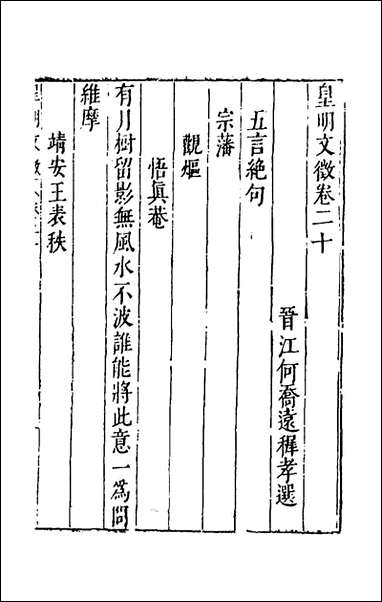 皇明文徵卷二十
晉江何喬遠穉孝選
五言絶句
宗藩
覲熰
悟眞菴
有月樹留影無風水不波誰能將此意一爲問
維摩
靖安王表秩